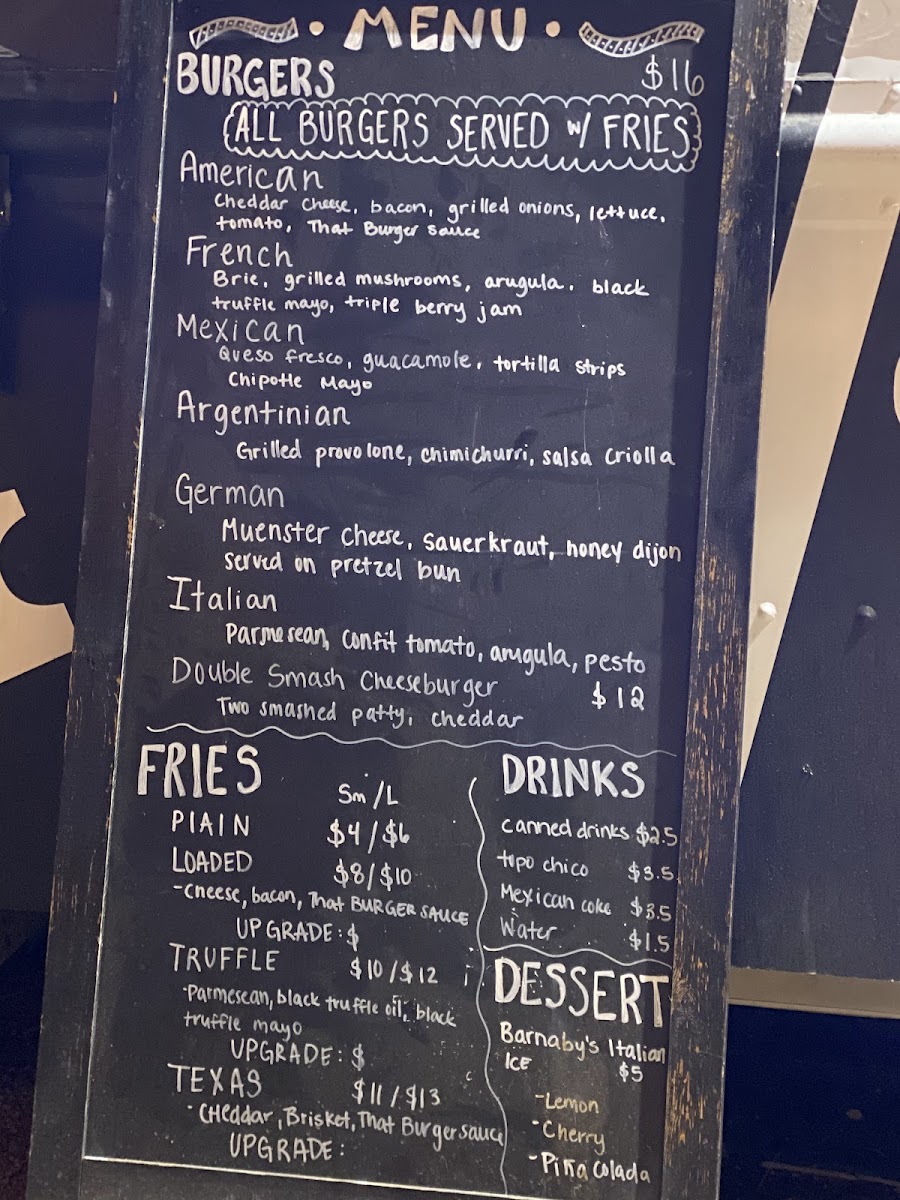 • MENU •
BURGERS $16
ALL BURGERS SERVED w/ FRIES
American
Cheddar Cheese, bacon, grilled onions, lettuce,
tomato, That Burger Sauce
French
Brie, grilled mushrooms, arugula, black
truffle mayo, triple berry jam
Mexican
Queso fresco, guacamole, tortilla strips
Chipotle Mayo
Argentinian
Grilled provolone, chimichurri, salsa criolla
German
Muenster Cheese, Sauerkraut, honey dijon
served on pretzel bun
Italian
Parmesean, confit tomato, arugula, pesto
Double Smash Cheeseburger $12
Two smashed patty, cheddar
FRIES
Sm/L
PlAIN $4/$6
LOADED $8/$10
-Cheese, bacon, That BURGER SAUCE
UPGRADE: $
TRUFFLE $10/$12
-Parmesean, black truffle oil, black
truffle mayo
UPGRADE: $
TEXAS $11/$13
-CHeddar, Brisket, That Burger sauce
UPGRADE:
DRINKS
Canned drinks $2.5
topo chico $3.5
Mexican coke $3.5
Water $1.5
DESSERT
Barnaby's Italian
ICE $5
-Lemon
-Cherry
-Piña Colada